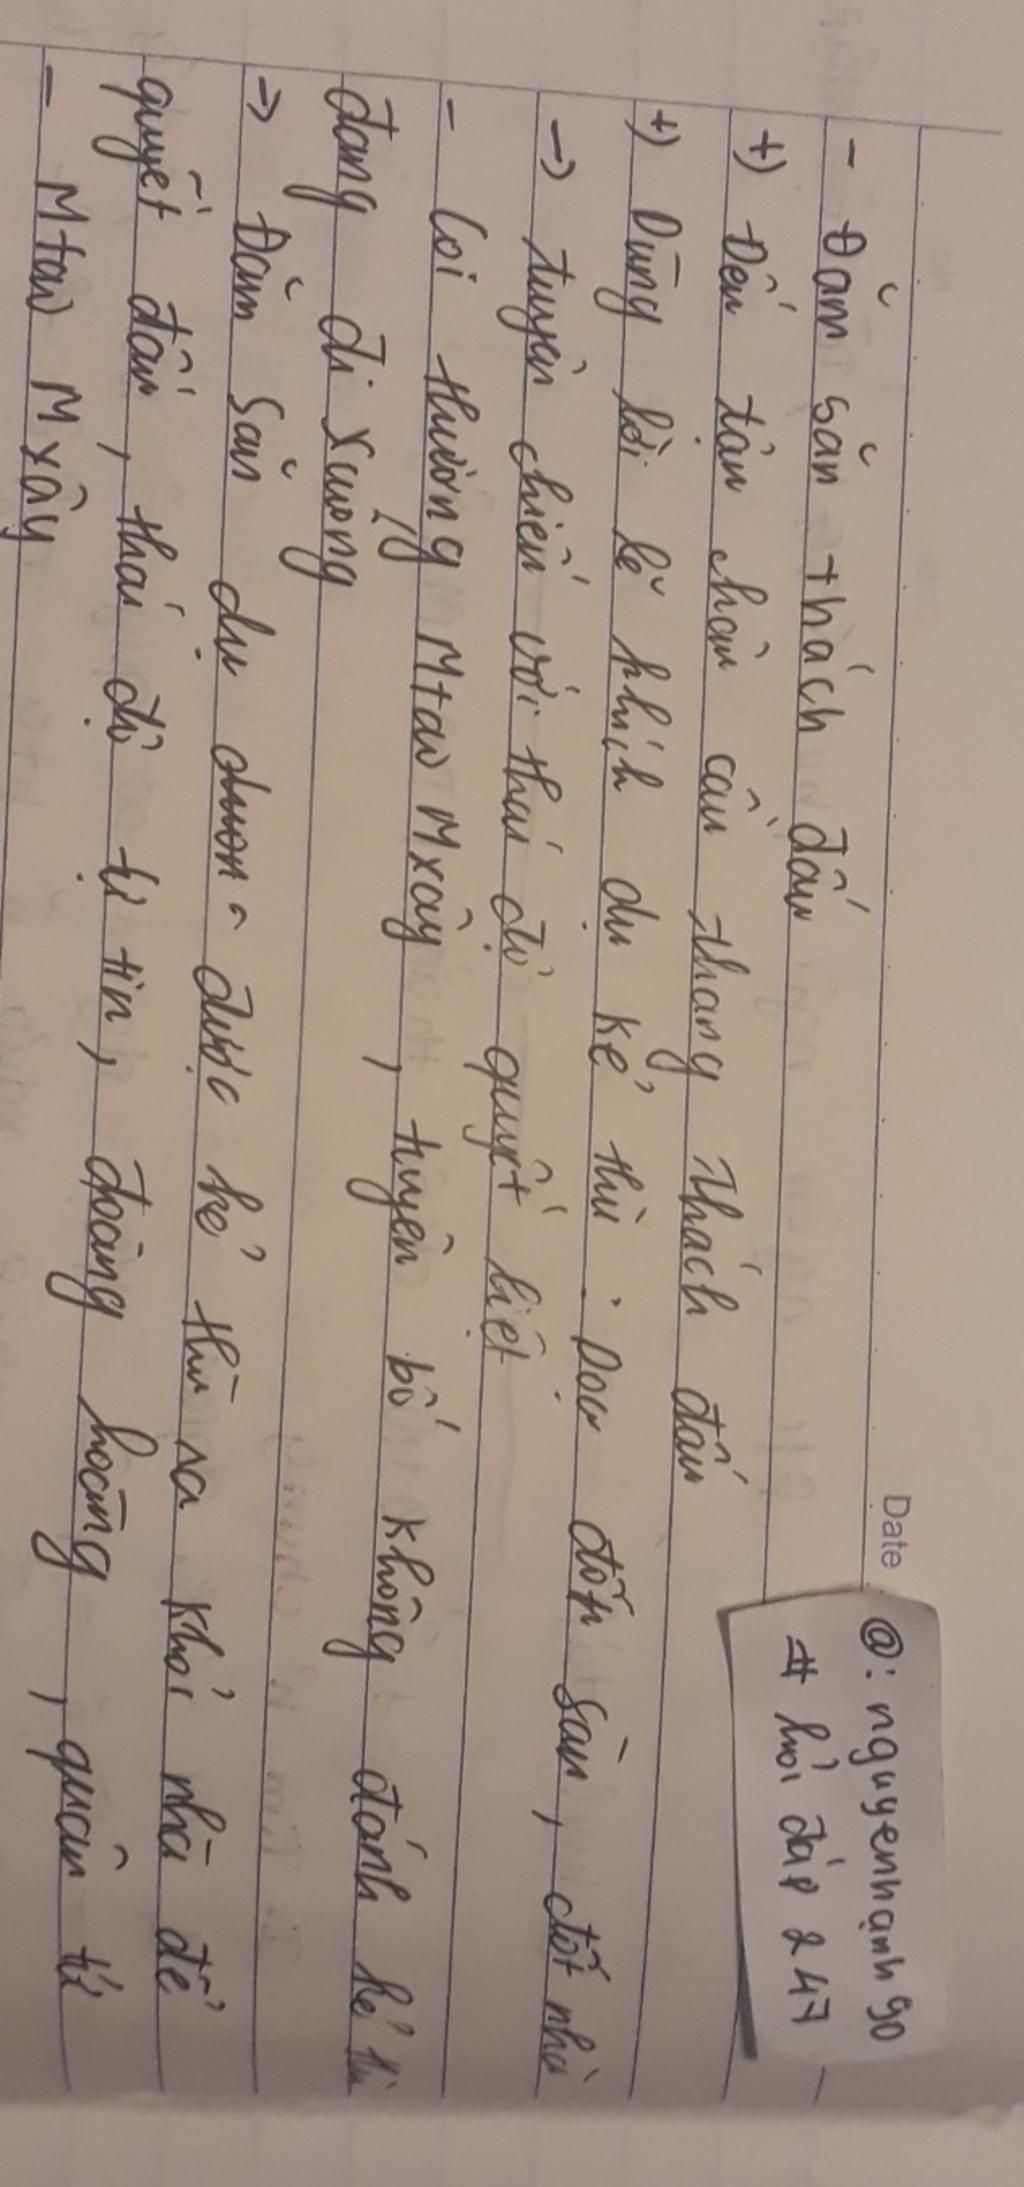 Date
@: nguyenhạnh90
# hỏi đáp 247
- Đăm Săn thách đấu
+) Đến tận chân cầu thang thách đấu
+) Dùng lời lẽ khích du kẻ thù : Dọa đốn sàn, đốt nhà
-> tuyên chiến với thái độ quyết liệt
- Coi thường Mtao Mxây, tuyên bố không đánh kẻ thù
đang đi xuống
-> Đăm Săn dụ được kẻ thù ra khỏi nhà để
quyết đấu, thái độ tự tin, đoàng hoàng, quân tử
- Mtao Mxây